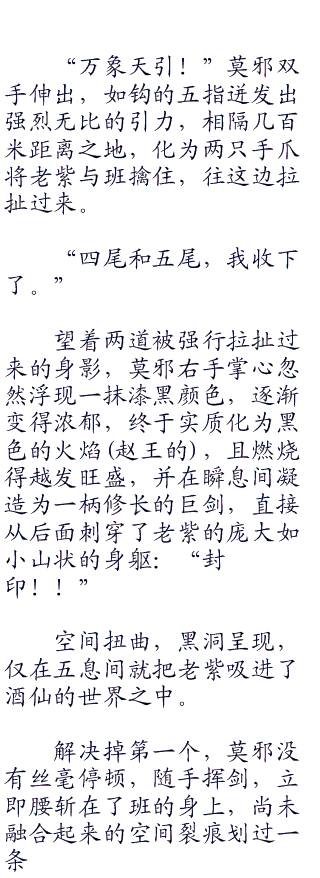 “万象天引！”莫邪双
手伸出，如钩的五指迸发出
强烈无比的引力，相隔几百
米距离之地，化为两只手爪
将老紫与班擒住，往这边拉
扯过来。
“四尾和五尾，我收下
了。”
望着两道被强行拉扯过
来的身影，莫邪右手掌心忽
然浮现一抹漆黑颜色，逐渐
变得浓郁，终于实质化为黑
色的火焰(赵王的)，且燃烧
得越发旺盛，并在瞬息间凝
造为一柄修长的巨剑，直接
从后面刺穿了老紫的庞大如
小山状的身躯：“封
印！！”
空间扭曲，黑洞呈现，
仅在五息间就把老紫吸进了
酒仙的世界之中。
解决掉第一个，莫邪没
有丝毫停顿，随手挥剑，立
即腰斩在了班的身上，尚未
融合起来的空间裂痕划过一
条